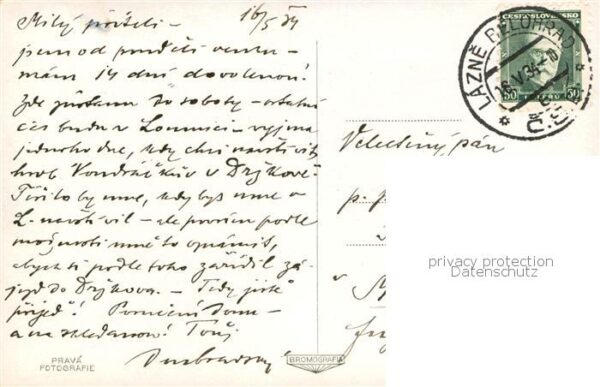 16/5 34
Milý příteli –
jsem od pondělí venku –
mám 14 dní dovolenou.
Zde zůstanu do soboty – ostatní
čas budu v Lomnici – vyjma
jednoho dne, kdy chci navštívit
hrob Vondráčkův v Držkově.
Těšilo by mne, kdyby mne v
L. navštívil – ale prosím podle
možnosti mně to oznámit,
abych si podle toho zařídil zá-
jezd do Držkova. – Tedy jistě
přijeď! Poručení Domu –
a na shledanou! Tvůj
PRAVÁ
FOTOGRAFIE
BROMOGRAFIA
ČESKOSLOVENSKO
50 50
LÁZNĚ BĚLOHRAD
16.V.34
Velectěný pán
p.
v
privacy protection
Datenschutz